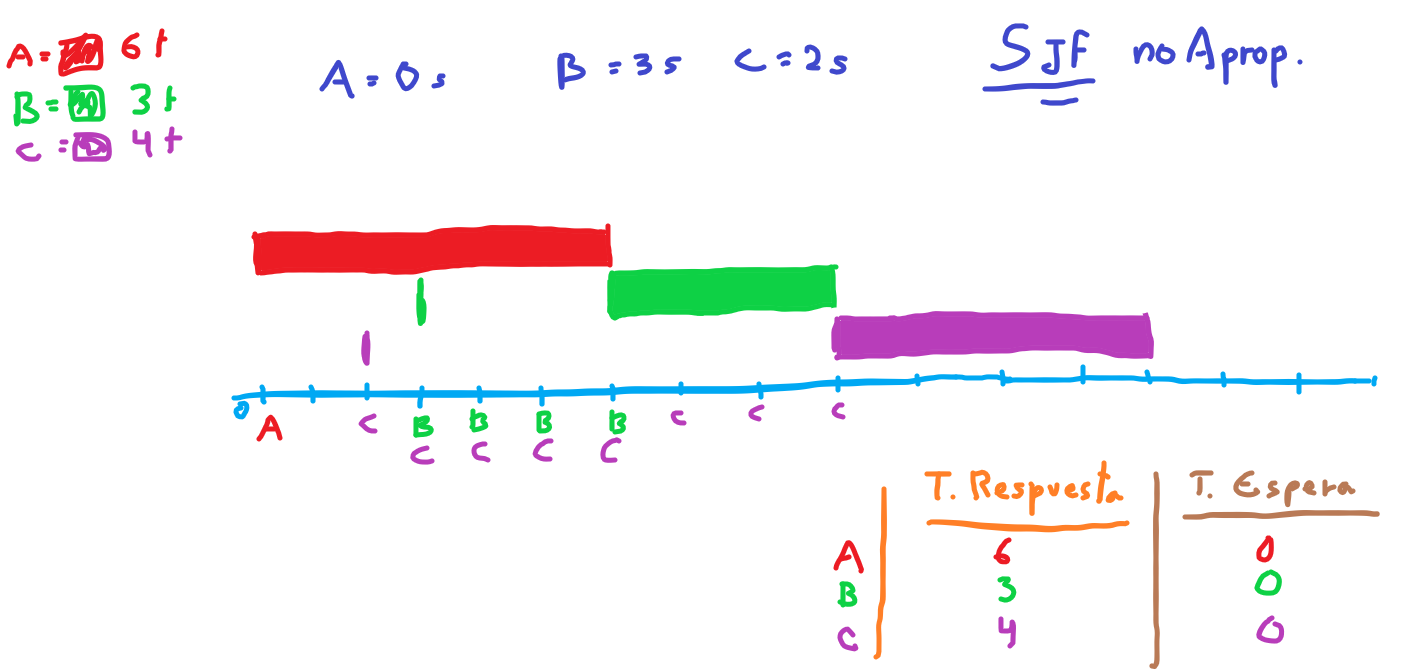 A = 6t
B = 3t
C = 4t
A = 0s B = 3s C = 2s
SJF no Aprop.
0
A C B B B B C C C
C C C C
T. Respuesta T. Espera
A 6 0
B 3 0
C 4 0